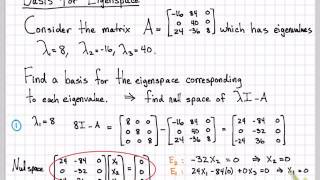 Basis for Eigenspace
Consider the matrix A = [-16 84 0; 0 40 0; 24 -36 8] which has eigenvalues
λ₁ = 8, λ₂ = -16, λ₃ = 40.
Find a basis for the eigenspace corresponding
to each eigenvalue. ⇒ find null space of λI-A
① λ₁ = 8 8I-A = [8 0 0; 0 8 0; 0 0 8] - [-16 84 0; 0 40 0; 24 -36 8]
Null space [24 -84 0; 0 -32 0; -24 36 0] [x₁; x₂; x₃] = [0; 0; 0]
E₂: -32x₂ = 0 ⇒ x₂ = 0
E₁: 24x₁ - 84(0) + 0x₃ = 0 ⇒ x₁ = 0